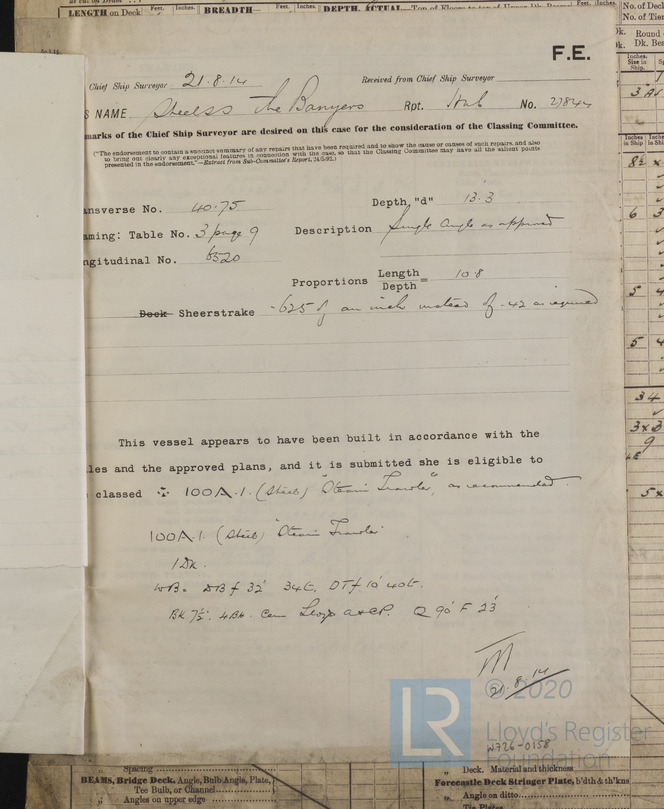 LENGTH on Deck Feet. Inches. BREADTH Feet. Inches. DEPTH, ACTUAL
No. of Deck
No. of Tier
F.E.
Chief Ship Surveyor 21.8.14 Received from Chief Ship Surveyor
S NAME Steelss The Banyers Rpt. Hul No. 27844
marks of the Chief Ship Surveyor are desired on this case for the consideration of the Classing Committee.
("The endorsement to contain a succinct summary of any repairs that have been required and to show the cause or causes of such repairs, and also
to bring out clearly any exceptional features in connection with the case, so that the Classing Committee may have all the salient points
presented in the endorsement."—Extract from Sub-Committee's Report, 24/5/92.)
ansverse No. 40.75 Depth "d" 13.3
aming: Table No. 3 page 9 Description Single Angle as approved
ngitudinal No. 6520
Proportions Length/Depth = 10.8
Deck Sheerstrake .625 of an inch instead of .42 as required
This vessel appears to have been built in accordance with the
les and the approved plans, and it is submitted she is eligible to
classed 100A.1. (Steel) "Steam Trawler" as recommended.
100A.1. (Steel) "Steam Trawler"
1Dk.
WB= DBf 32' 34t, DTf 10' 40t.
BK 7½", 4BH. Cem Lloyds A&CP. Q 90' F 23'
21.8.14
© 2020
LR
Lloyd's Register
Foundation
W726-0158
Spacing
BEAMS, Bridge Deck, Angle, Bulb Angle, Plate,
Tee Bulb, or Channel
„ Angles on upper edge
„ Deck. Material and thickness
Forecastle Deck Stringer Plate, b'dth & th'kns
„ Angle on ditto
Tie Plates